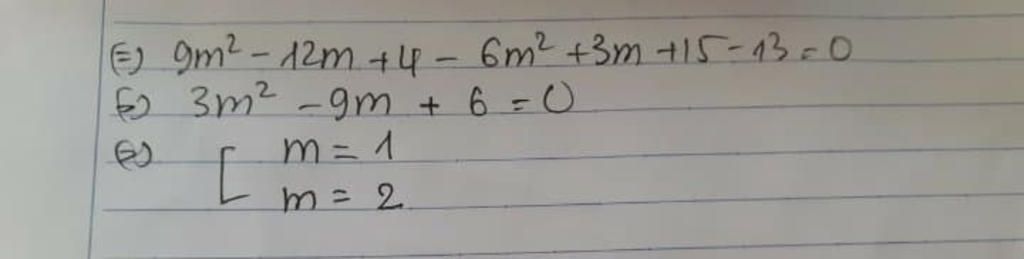 ⇔) 9m² - 12m + 4 - 6m² + 3m + 15 - 13 = 0
⇔) 3m² - 9m + 6 = 0
⇔) [ m = 1
m = 2